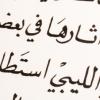 اثارها في بعض
الليبي استطا